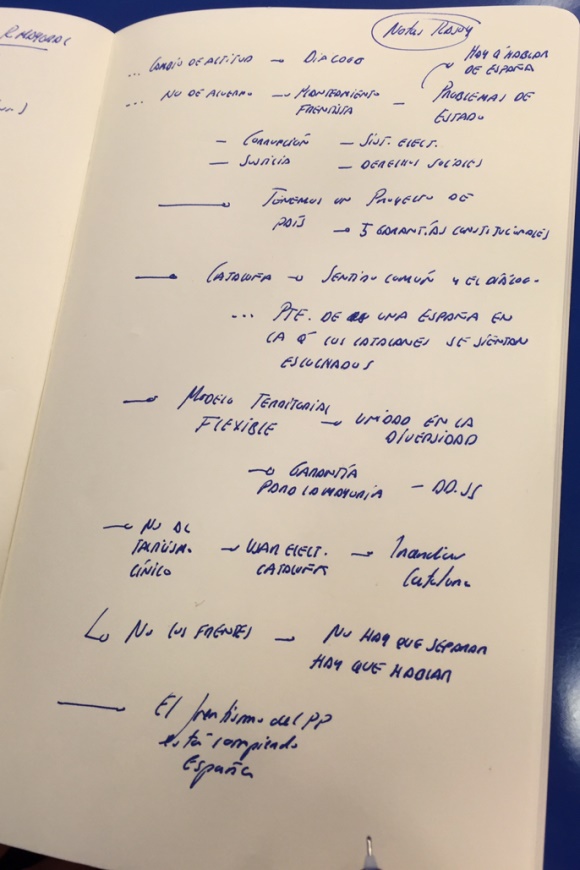 R. MAYORAL
NOTAS RAJOY
... CAMBIO DE ACTITUD → DIÁLOGO
HAY Q HABLAR
DE ESPAÑA
... NO DE ACUERDO → MANTENIMIENTO
FRENTISTA – PROBLEMAS DE
ESTADO
– CORRUPCIÓN – SIST. ELECT.
– JUSTICIA – DERECHOS SOCIALES
→ TENEMOS UN PROYECTO DE
PAÍS → 5 GARANTÍAS CONSTITUCIONALES
→ CATALUÑA → SENTIDO COMÚN Y EL DIÁLOGO
... PTE. DE UNA ESPAÑA EN
LA Q LOS CATALANES SE SIENTAN
ESCUCHADOS
→ MODELO TERRITORIAL
FLEXIBLE → UNIDAD EN LA
DIVERSIDAD
→ GARANTÍA
PARA LA MAYORÍA – DD.SS
→ NO AL
CÍNICO → USAR ELECT.
CATALUÑA → Incendiar
Cataluña
↳ NO LOS FRENTES → NO HAY QUE SEPARAR
HAY QUE HABLAR
— El frentismo del PP
está rompiendo
España